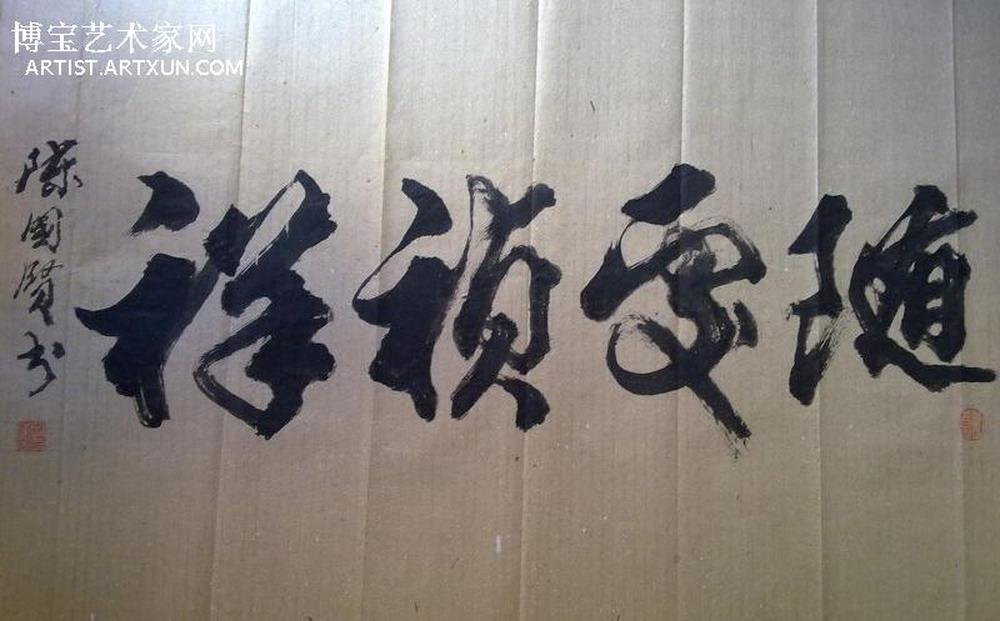 博宝艺术家网
ARTIST.ARTXUN.COM
随处祯祥
陈国贤书